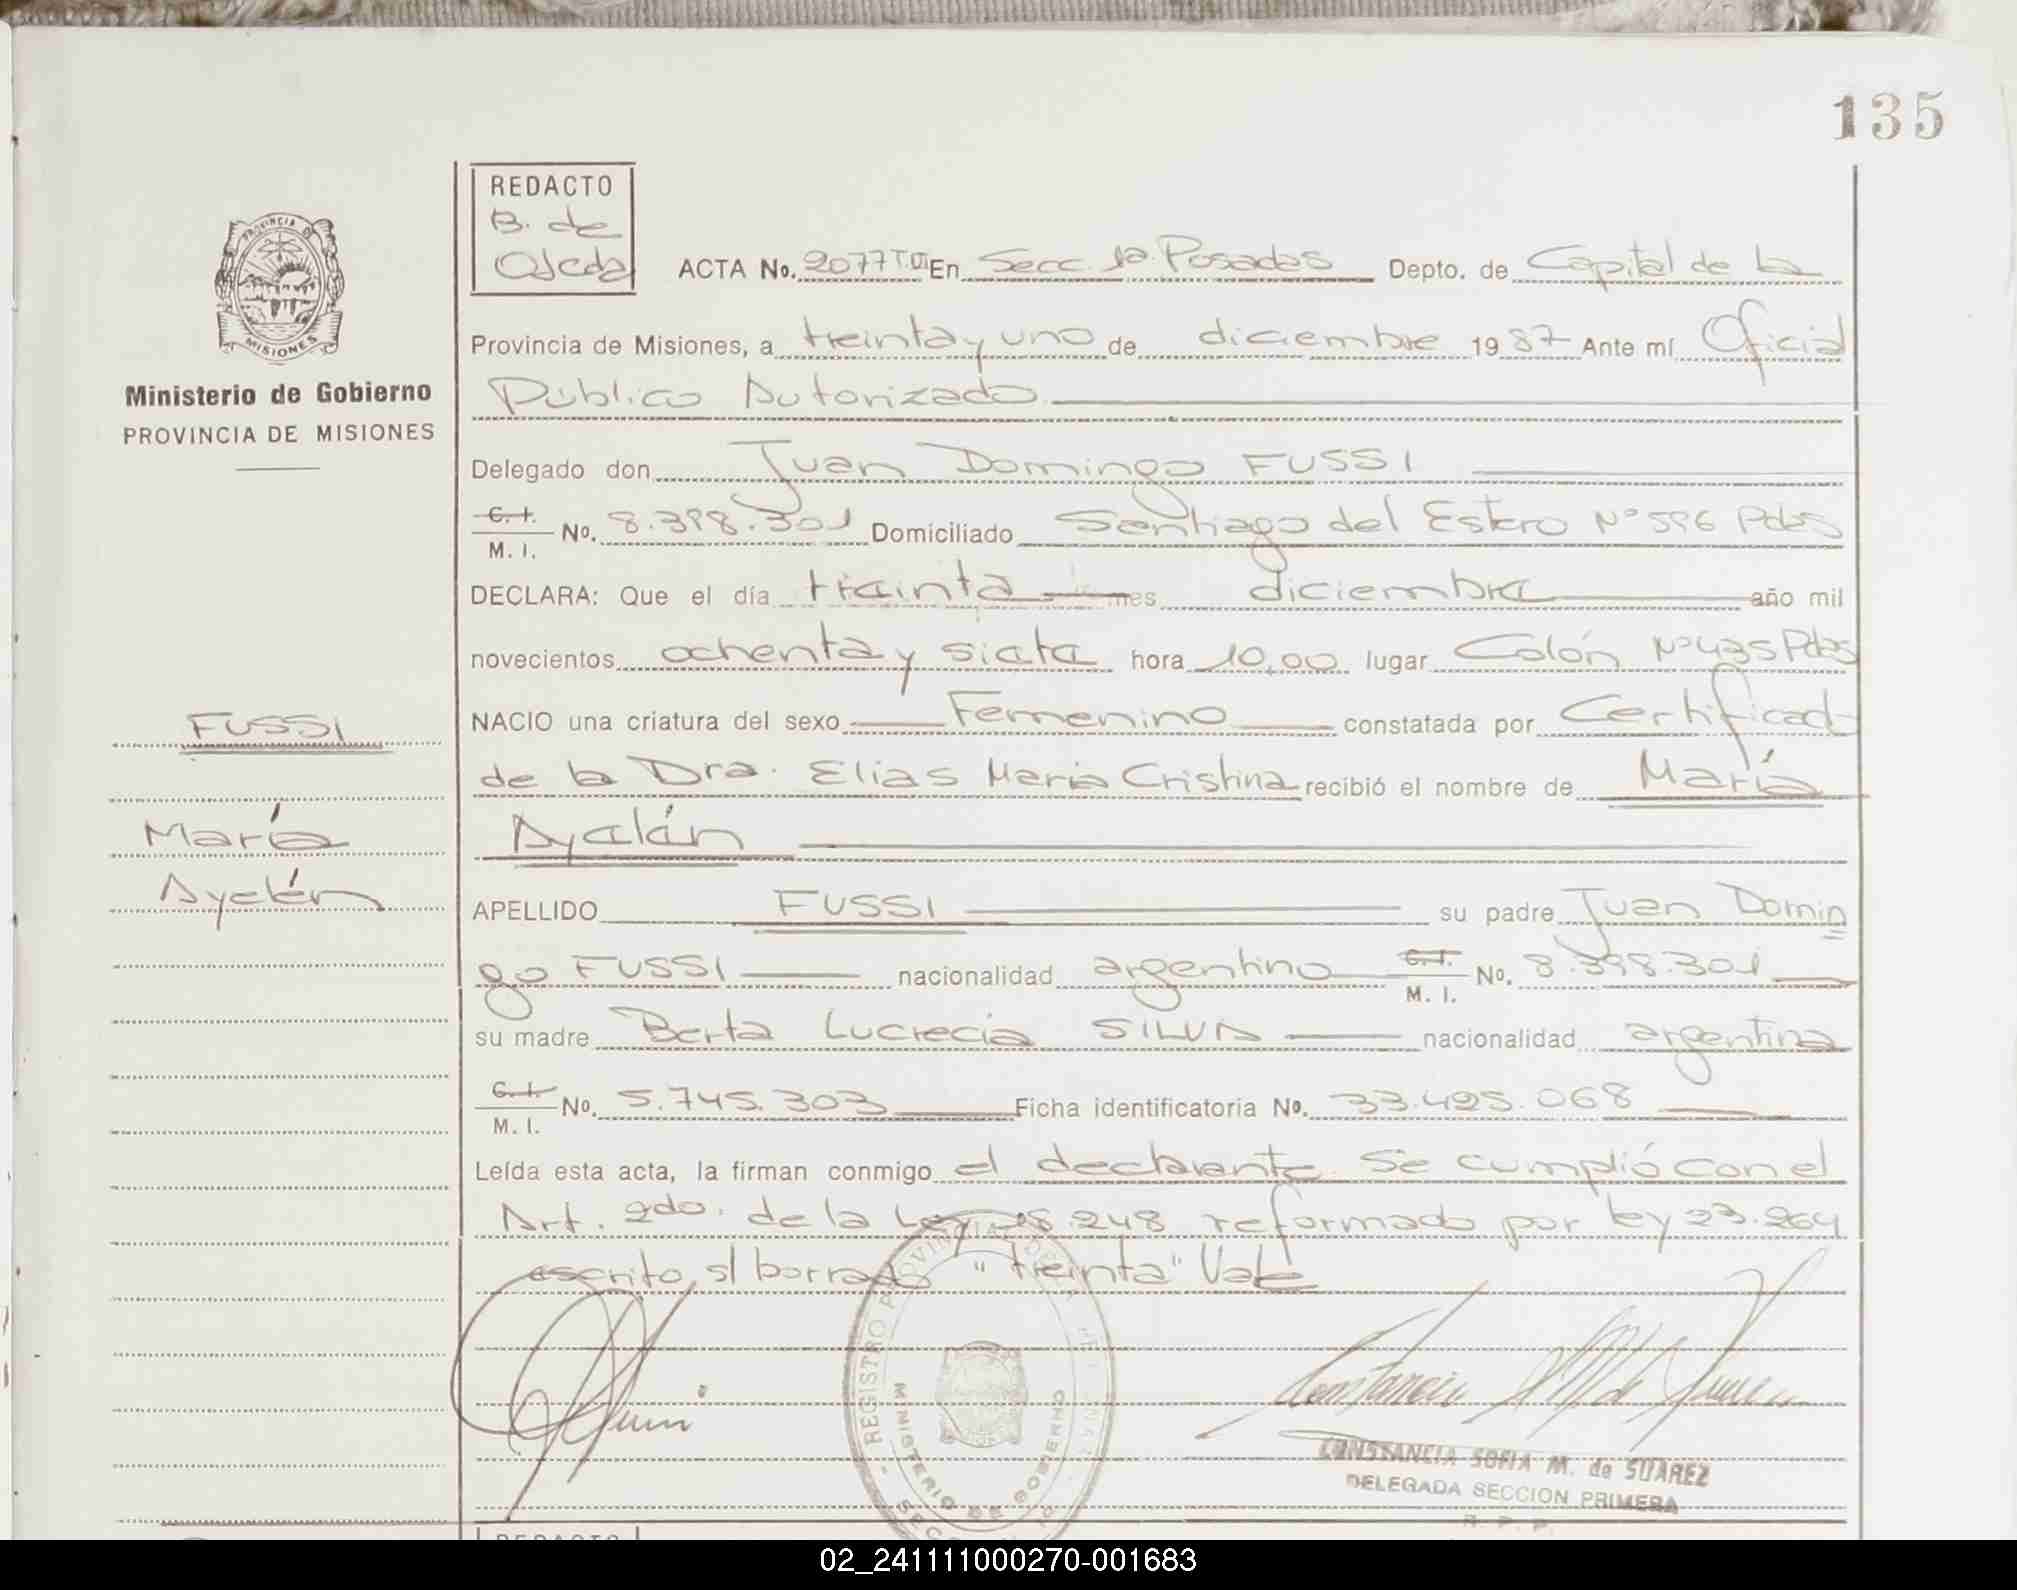 135
REDACTO
B. de
Ojeda
ACTA No. 2077 T. VI En Secc. 1a Posadas Depto. de Capital de la
PROVINCIA DE MISIONES
Ministerio de Gobierno
PROVINCIA DE MISIONES
Provincia de Misiones, a treinta y uno de diciembre 1987 Ante mí Oficial
Público Autorizado
Delegado don Juan Domingo FUSSI
C. I. M. I. No. 8.398.301 Domiciliado Santiago del Estero Nº 596 Pdas
DECLARA: Que el día treinta mes diciembre año mil
novecientos ochenta y siete hora 10,00 lugar Colón Nº 435 Pdas
FUSSI
NACIO una criatura del sexo Femenino constatada por Certificado
de la Dra. Elias Maria Cristina recibió el nombre de María
María
Ayelén
Ayelén
APELLIDO FUSSI su padre Juan Domin
go FUSSI nacionalidad argentino C. I. M. I. No. 8.398.301
su madre Berta Lucrecia SILVA nacionalidad argentina
C. I. M. I. No. 5.745.303 Ficha identificatoria No. 33.425.068
Leída esta acta, la firman conmigo el declarante. Se cumplió con el
Art. 2do. de la Ley 18.248 reformado por ley 23.264
escrito s/ borrado "treinta" Vale
REGISTRO PROVINCIAL DE LAS PERSONAS
MINISTERIO DE GOBIERNO
CONSTANCIA SOFIA M. de SUAREZ
DELEGADA SECCION PRIMERA
R. P. P.
REDACTO
02_241111000270-001683